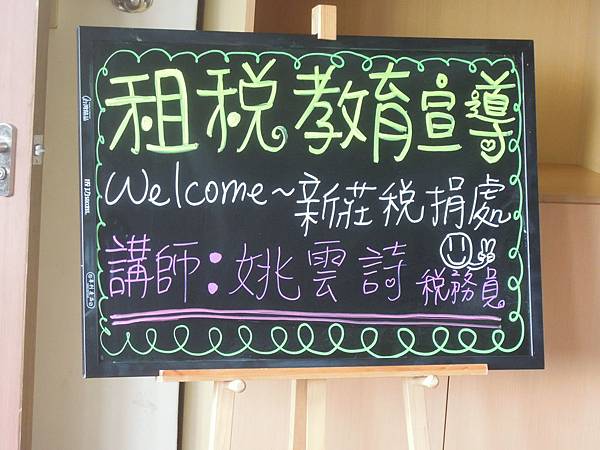 租稅教育宣導
Welcome~新莊稅捐處
講師:姚雲詩 稅務員